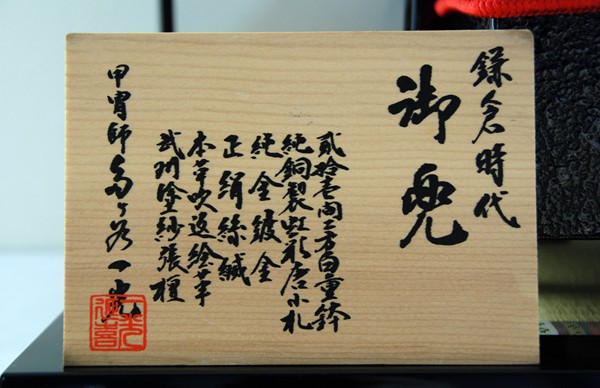 鎌倉時代
御兜
貳拾壱間三方白重鉢
純銅製虹彩唐小札
純金鍍金
正絹絲縅
本革吹返絵革
武州塗紗張櫃
甲冑師 一光